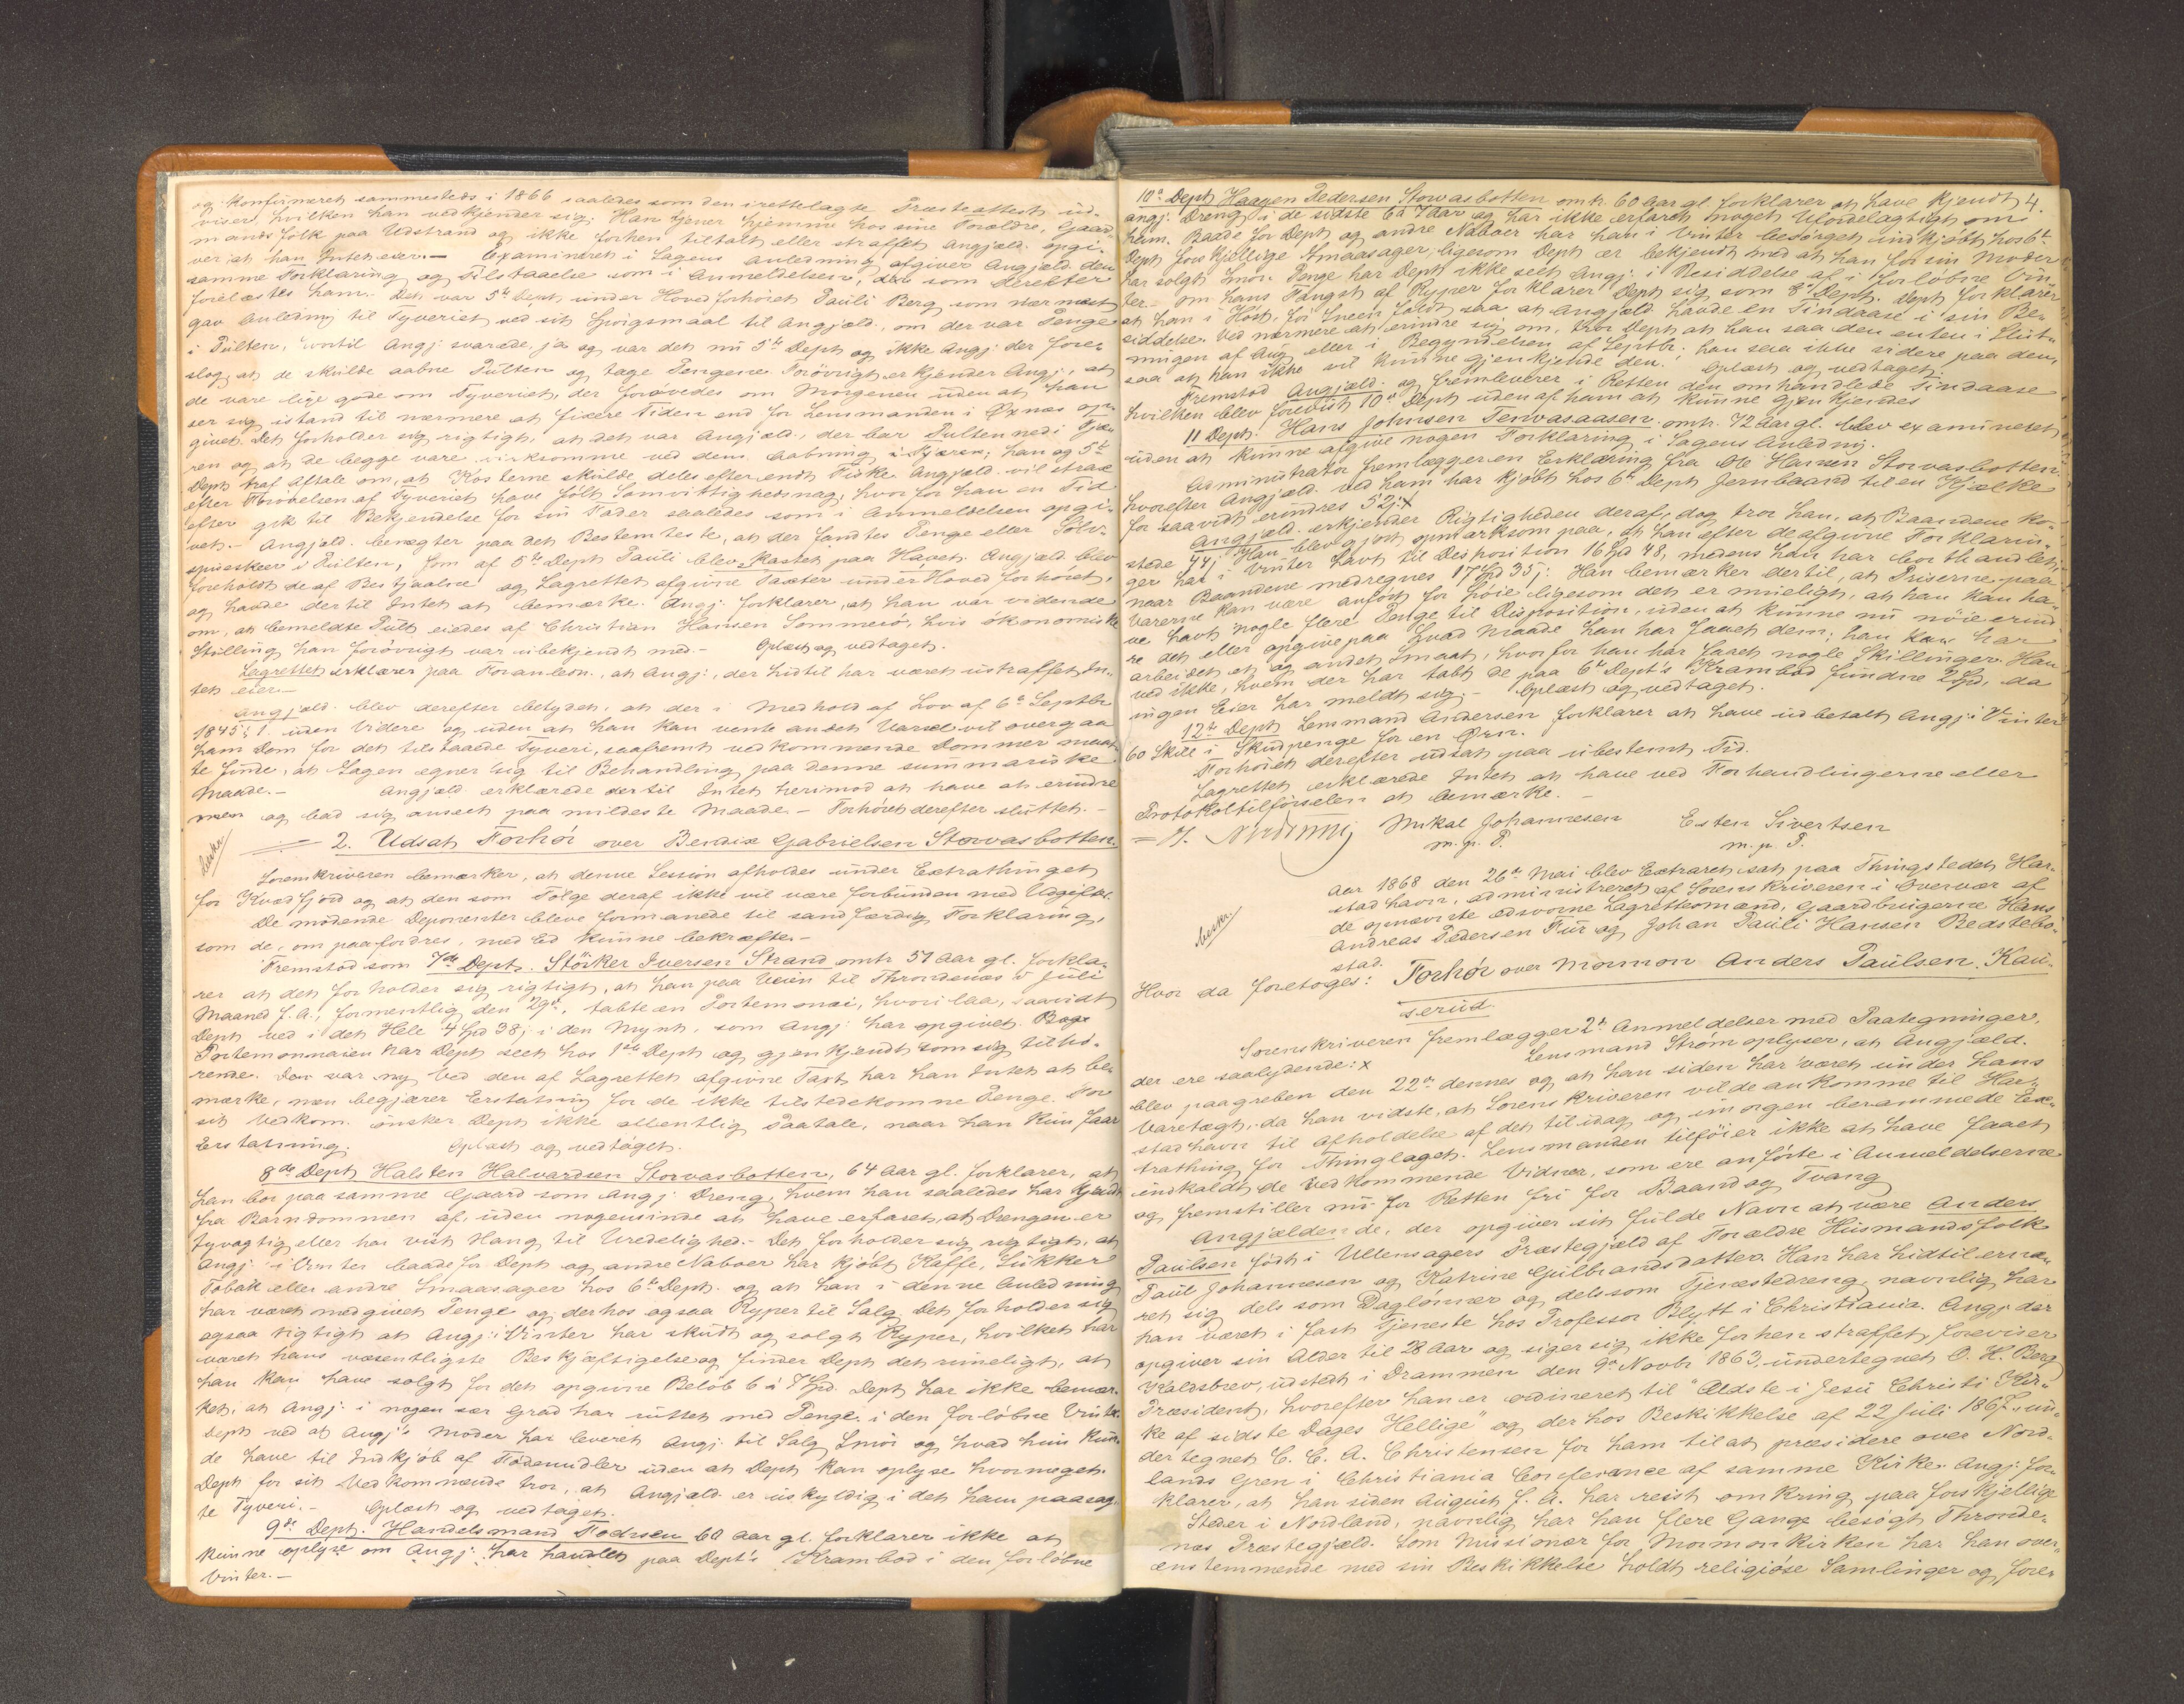 og konfirmeret sammesteds i 1866 saaledes som den irettelagte Præsteattest ud-
viser, hvilken han vedkjender sig; Han tjener hjemme hos sine Forældre, Gaard-
mandsfolk paa Udstrand og ikke forhen tiltalt eller straffet Angjæld. opgi-
ver at han Intet eier.- Examineret i Sagens Anledning afgiver Angjæld. den
samme Forklaring og Tilstaaelse som i Anmeldelsen, som derefter
forelæstes ham. Det var 5te Dept. under Hovedforhøret Pauli Berg som nærmest
gav Anledning til Tyveriet ved sit Spørgsmaal til Angjæld., om der var Penge
i Pulten, hvortil Angj. svarede, ja og var det nu 5te Dept. og ikke Angj. der fore-
slog, at de skulde aabne Pulten og tage Pengene. Forøvrigt erkjender Angj., at
de vare lige gode om Tyveriet, der forøvedes om Morgenen uden at han
ser sig istand til nærmere at fixere Tiden end for Lensmanden i Øxnes op-
givet. Det forholder sig rigtigt, at det var Angjæld., der bar Pulten ned i Fjæ-
ren og at de begge vare virksomme ved dens Aabning i Fjæren; han og 5te
Dept. traf Aftale om, at Kosterne skulde deles efter endt Fiske. Angjæld. vil strax
efter Forøvelsen af Tyveriet have følt Samvittighedsnag, hvorfor han en Tid
efter gik til Bekjendelse for sin Fader saaledes som i Anmeldelsen opgi-
vet.- Angjæld. benægter paa det Bestemteste, at der fandtes Penge eller Sølv-
spiseskeer i Pulten, som af 5te Dept. Pauli blev kastet paa Havet. Angjæld. blev
foreholdt de af Bestjaalne og Lagrettet afgivne Taxter under Hovedforhøret,
og havde dertil Intet at bemærke. Angj. forklarer, at han var vidende
om, at bemeldte Pult eiedes af Christian Hansen Sommerø, hvis økonomiske
Stilling han forøvrigt var ubekjendt med.- Oplæst og vedtaget.
Lagrettet erklærer paa Foranledn., at Angj., der hidtil har været ustraffet In-
tet eier.-
Angjæld. blev derefter betydet, at der i Medhold af Lov af 6te Septbr
1845 § 1. uden Videre og uden at han kan vente andet Varsel vil overgaa
ham Dom for det tilstaaede Tyveri, saafremt vedkommende Dommer maat-
te finde, at Sagen egner sig til Behandling paa denne summariske
Maade.- Angjæld. erklærede dertil Intet herimod at have at erindre
men og bad sig anseet paa mildeste Maade.- Forhøret derefter sluttet.-
beskr.
2. Udsat Forhør over Bendix Gabrielsen Storvasbotten.
Sorenskriveren bemærker, at denne Session afholdes under Extrathinget
for Kvædfjord og at den som Følge deraf ikke vil være forbunden med Udgifter.
De mødende Deponenter bleve formanede til sandfærdig Forklaring,
som de, om paafordres, med Ed kunne bekræfte.-
Fremstod som 7de Dept. Störker Iversen Strand omtr. 57 Aar gl. forkla-
rer at det forholder sig rigtigt, at han paa Veien til Throndenæs i Juli
Maaned f. A., formentlig den 29de, tabte en Portemonai, hvori laa, saavidt
Dept. ved i det Hele 4 Spd 38 i den Mynt, som Angj. har opgivet.
Portemonnaien har Dept. seet hos 1ste Dept. og gjenkjendt som sig tilhø-
rende. Den var ny. Ved den af Lagrettet afgivne Taxt har han Intet at be-
mærke, men begjærer Erstatning for de ikke tilstedekomne Penge. For
sit Vedkom. ønsker Dept. ikke offentlig Paatale, naar han kun faar
Erstatning. Oplæst og vedtaget.
8de Dept. Halsten Halvardsen Storvasbotten, 64 Aar gl. forklarer, at
han bor paa samme Gaard som Angj. Dreng, hvem han saaledes har kjendt
fra Barndommen af, uden nogensinde at have erfaret, at Drengen er
tyvagtig eller har vist Hang til Uredelighed.- Det forholder sig rigtigt, at
Angj. i Vinter baade for Dept. og andre Naboer har kjøbt Kaffe, Sukker
Tobak eller andre Smaasager hos 6te Dept. og at han i denne Anledning
har været medgivet Penge og derhos ogsaa Ryper til Salg. Det forholder sig
ogsaa rigtigt at Angj. i Vinter har skudt og solgt Ryper, hvilket har
været hans væsentligste Beskjæftigelse og finder Dept. det rimeligt, at
han kan have solgt for det opgivne Beløb 6 à 7 Spd. Dept. har ikke bemær-
ket, at Angj. i nogen sær Grad har ruttet med Penge i den forløbne Vinter.
Dept. ved at Angj's Moder har leveret Angj. til Salg Smør og hvad hun kun-
de have til Indkjøb af Fødemidler uden at Dept. kan oplyse hvormeget.
Dept. for sit Vedkommende tror, at Angjæld. er uskyldig i det ham paasag-
te Tyveri.- Oplæst og vedtaget.
9de Dept. Handelsmand Fodnsen 60 Aar gl. forklarer ikke at
kunne oplyse om Angj. har handlet paa Dept's Krambod i den forløbne
Vinter.-
4.
10de Dept. Haagen Pedersen Storvasbotten omtr. 60 Aar gl. forklarer at have kjendt
angj. Dreng i de sidste 6 à 7 Aar og har ikke erfaret noget Ufordelagtigt om
ham. Baade for Dept. og andre Naboer har han i Vinter besørget indkjøbt hos 6te
Dept. forskjellige Smaasager, ligesom Dept. er bekjendt med at han for sin Moder
har solgt Smør. Penge har Dept. ikke seet Angj. i Besiddelse af i forløbne Vin-
ter.- Om hans Fangst af Ryper forklarer Dept. sig som 8de Dept. Dept. forklarer
at han i Høst, før Sneen faldt, saa, at Angjæld. havde en Tindaase i sin Be-
siddelse. Ved nærmere at erindre sig om, tror Dept. at han saa den enten i Slut-
ningen af Aug. eller i Begyndelsen af Septbr.; han saa ikke videre paa den,
saa at han ikke vil kunne gjenkjende den. Oplæst og vedtaget.
Fremstod Angjæld. og fremleverer i Retten den omhandlede Tindaase
hvilken blev forevist 10de Dept. uden af ham at kunne gjenkjendes
11 Dept. Hans Johnsen Tervasaasen omtr. 72 Aar gl. blev examineret
uden at kunne afgive nogen Forklaring i Sagens Anledning.
Administrator fremlægger en Erklæring fra Ole Hansen Storvasbotten
hvorefter Angjæld. ved ham har kjøbt hos 6te Dept. Jernbaand til en Kjælke
for saavidt erindres 52 β. x
Angjæld. erkjender Rigtigheden deraf, dog tror han, at Baandene ko-
stede 48 β. Han blev gjort opmærksom paa, at han efter de afgivne Forklarin-
ger har i Vinter havt til Disposition 16 Spd 48, medens han har borthandlet,
naar Baandene medregnes 17 Spd 35 β. Han bemærker dertil, at Priserne paa
Varerne kan være anført for høie ligesom det er mueligt, at han kan ha-
ve havt nogle flere Penge til Disposition, uden at kunne nu nøie erind-
re det eller opgive paa hvad Maade han har faaet dem; han har
arbeidet et og andet Smaat, hvorfor han har faaet nogle Skillinger. Han
ved ikke, hvem der har tabt de paa 6te Dept's Krambod fundne 2 Spd, da
ingen Eier har meldt sig.- Oplæst og vedtaget.
12te Dept. Lensmand Andersen forklarer at have udbetalt Angj. i Vinter
60 Skill i Skudpenge for en Ørn.
Forhøret derefter udsat paa ubestemt Tid.
Lagrettet erklærede Intet at have ved Forhandlingerne eller
Protokoltilførselen at bemærke.-
Mikal Johannesen Esten Sivertsen
m. p. P. m. p. P.
beskr.
Aar 1868 den 26de Mai blev Extraret sat paa Thingstedet Har-
stadhavn, administreret af Sorenskriveren i Overvær af
de opnævnte edsvorne Lagrettemænd, Gaardbrugerne Hans
Andreas Pedersen Fur og Johan Pauli Hansen Beastebo-
stad.
Hvor da foretoges: Forhør over Mormon Anders Paulsen Kau-
serud.
Sorenskriveren fremlægger 2de Anmeldelser med Paategninger,
der ere saalydende: x Lensmand Strøm oplyser, at Angjæld.
blev paagreben den 22de dennes og at han siden har været under hans
Varetægt, da han vidste, at Sorenskriveren vilde ankomme til Har-
stadhavn til Afholdelse af det til idag og imorgen berammede Ex-
trathing for Thinglaget. Lensmanden tilføier ikke at have faaet
indkaldt de vedkommende Vidner, som ere anførte i Anmeldelserne
og fremstiller nu for Retten fri for Baand og Tvang
Angjældende, der opgiver sit fulde Navn at være Anders
Paulsen født i Ullensagers Præstegjæld af Forældre Husmandsfolk
Paul Johannesen og Katrine Gulbrandsdatter. Han har hidtil ernæ-
ret sig dels som Daglønner og dels som Tjenestedreng, navnlig har
han været i fast Tjeneste hos Professor Blytt i Christiania. Angj. der
opgiver sin Alder til 28 Aar og siger sig ikke forhen straffet, foreviser
Kaldsbrev, udstedt i Drammen den 9de Novbr 1863, undertegnet O. H. Berg
Præsident, hvorefter han er ordineret til "Ældste i Jesu Christi Kir-
ke af sidste Dages Hellige" og derhos Beskikkelse af 22 Juli 1867, un-
dertegnet C. C. A. Christensen for ham til at præsidere over Nord-
lands Gren i Christiania Conferance af samme Kirke. Angj. for-
klarer, at han siden August f. A. har reist omkring paa forskjellige
Steder i Nordland, navnlig har han flere Gange besøgt Thronde-
næs Præstegjæld. Som Missionær for Mormonkirken har han over-
ensstemmende med sin Beskikkelse holdt religiøse Samlinger og fore-